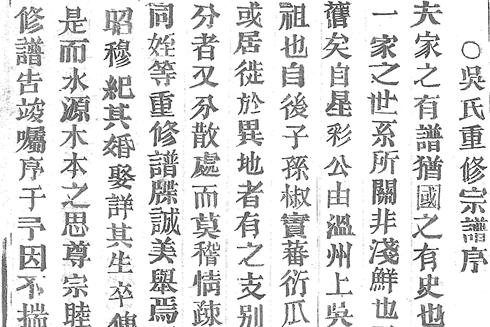 ○吳氏重修宗譜序
夫家之有譜猶國之有史也
一家之世系所關非淺鮮也
矣自星彩公由溫州上吳
祖也自後子孫椒實蕃衍瓜
或居徙於異地者有之支别
分者又分散處而莫稽情疎
同姪等重修譜牒誠美舉焉
昭穆紀其婚娶詳其生卒
是而水源木本之思尊宗睦
修譜告竣囑序于予因不揣